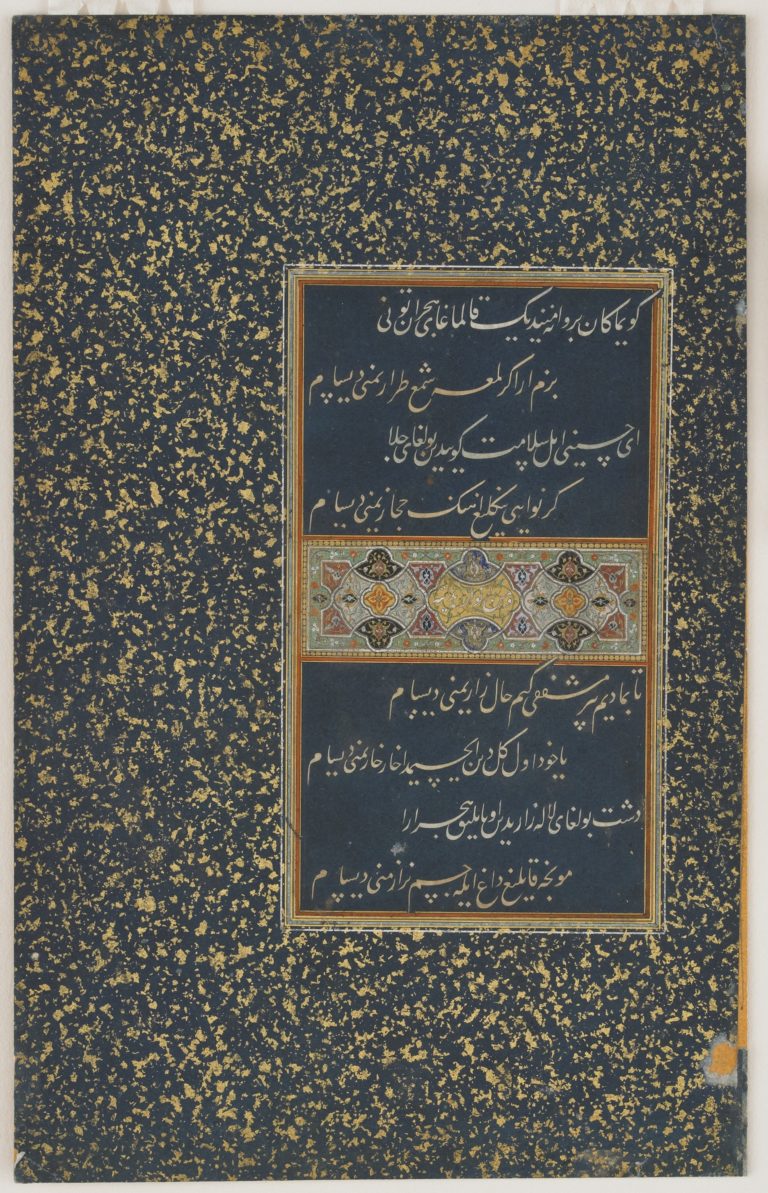 کویماکان پروانه دیک قالماغای هجران تونی
بزم ارا کر لمعه شمع طرازیمنی دیسام
ای حسینی اهل سلامت کوییدین بولغای جلا
کر نوایی یکلیغ اهنک حجازیمنی دیسام
تابمادیم بر مشفقی کیم حال زاریمنی دیسام
یا خود اول کل دین ایچیمدا خار خاریمنی دیسام
دشت بولغای لاله زاریدین اویاتلیق هجر ارا
مونجه قانلیغ داغ ایله جسم نزاریمنی دیسام